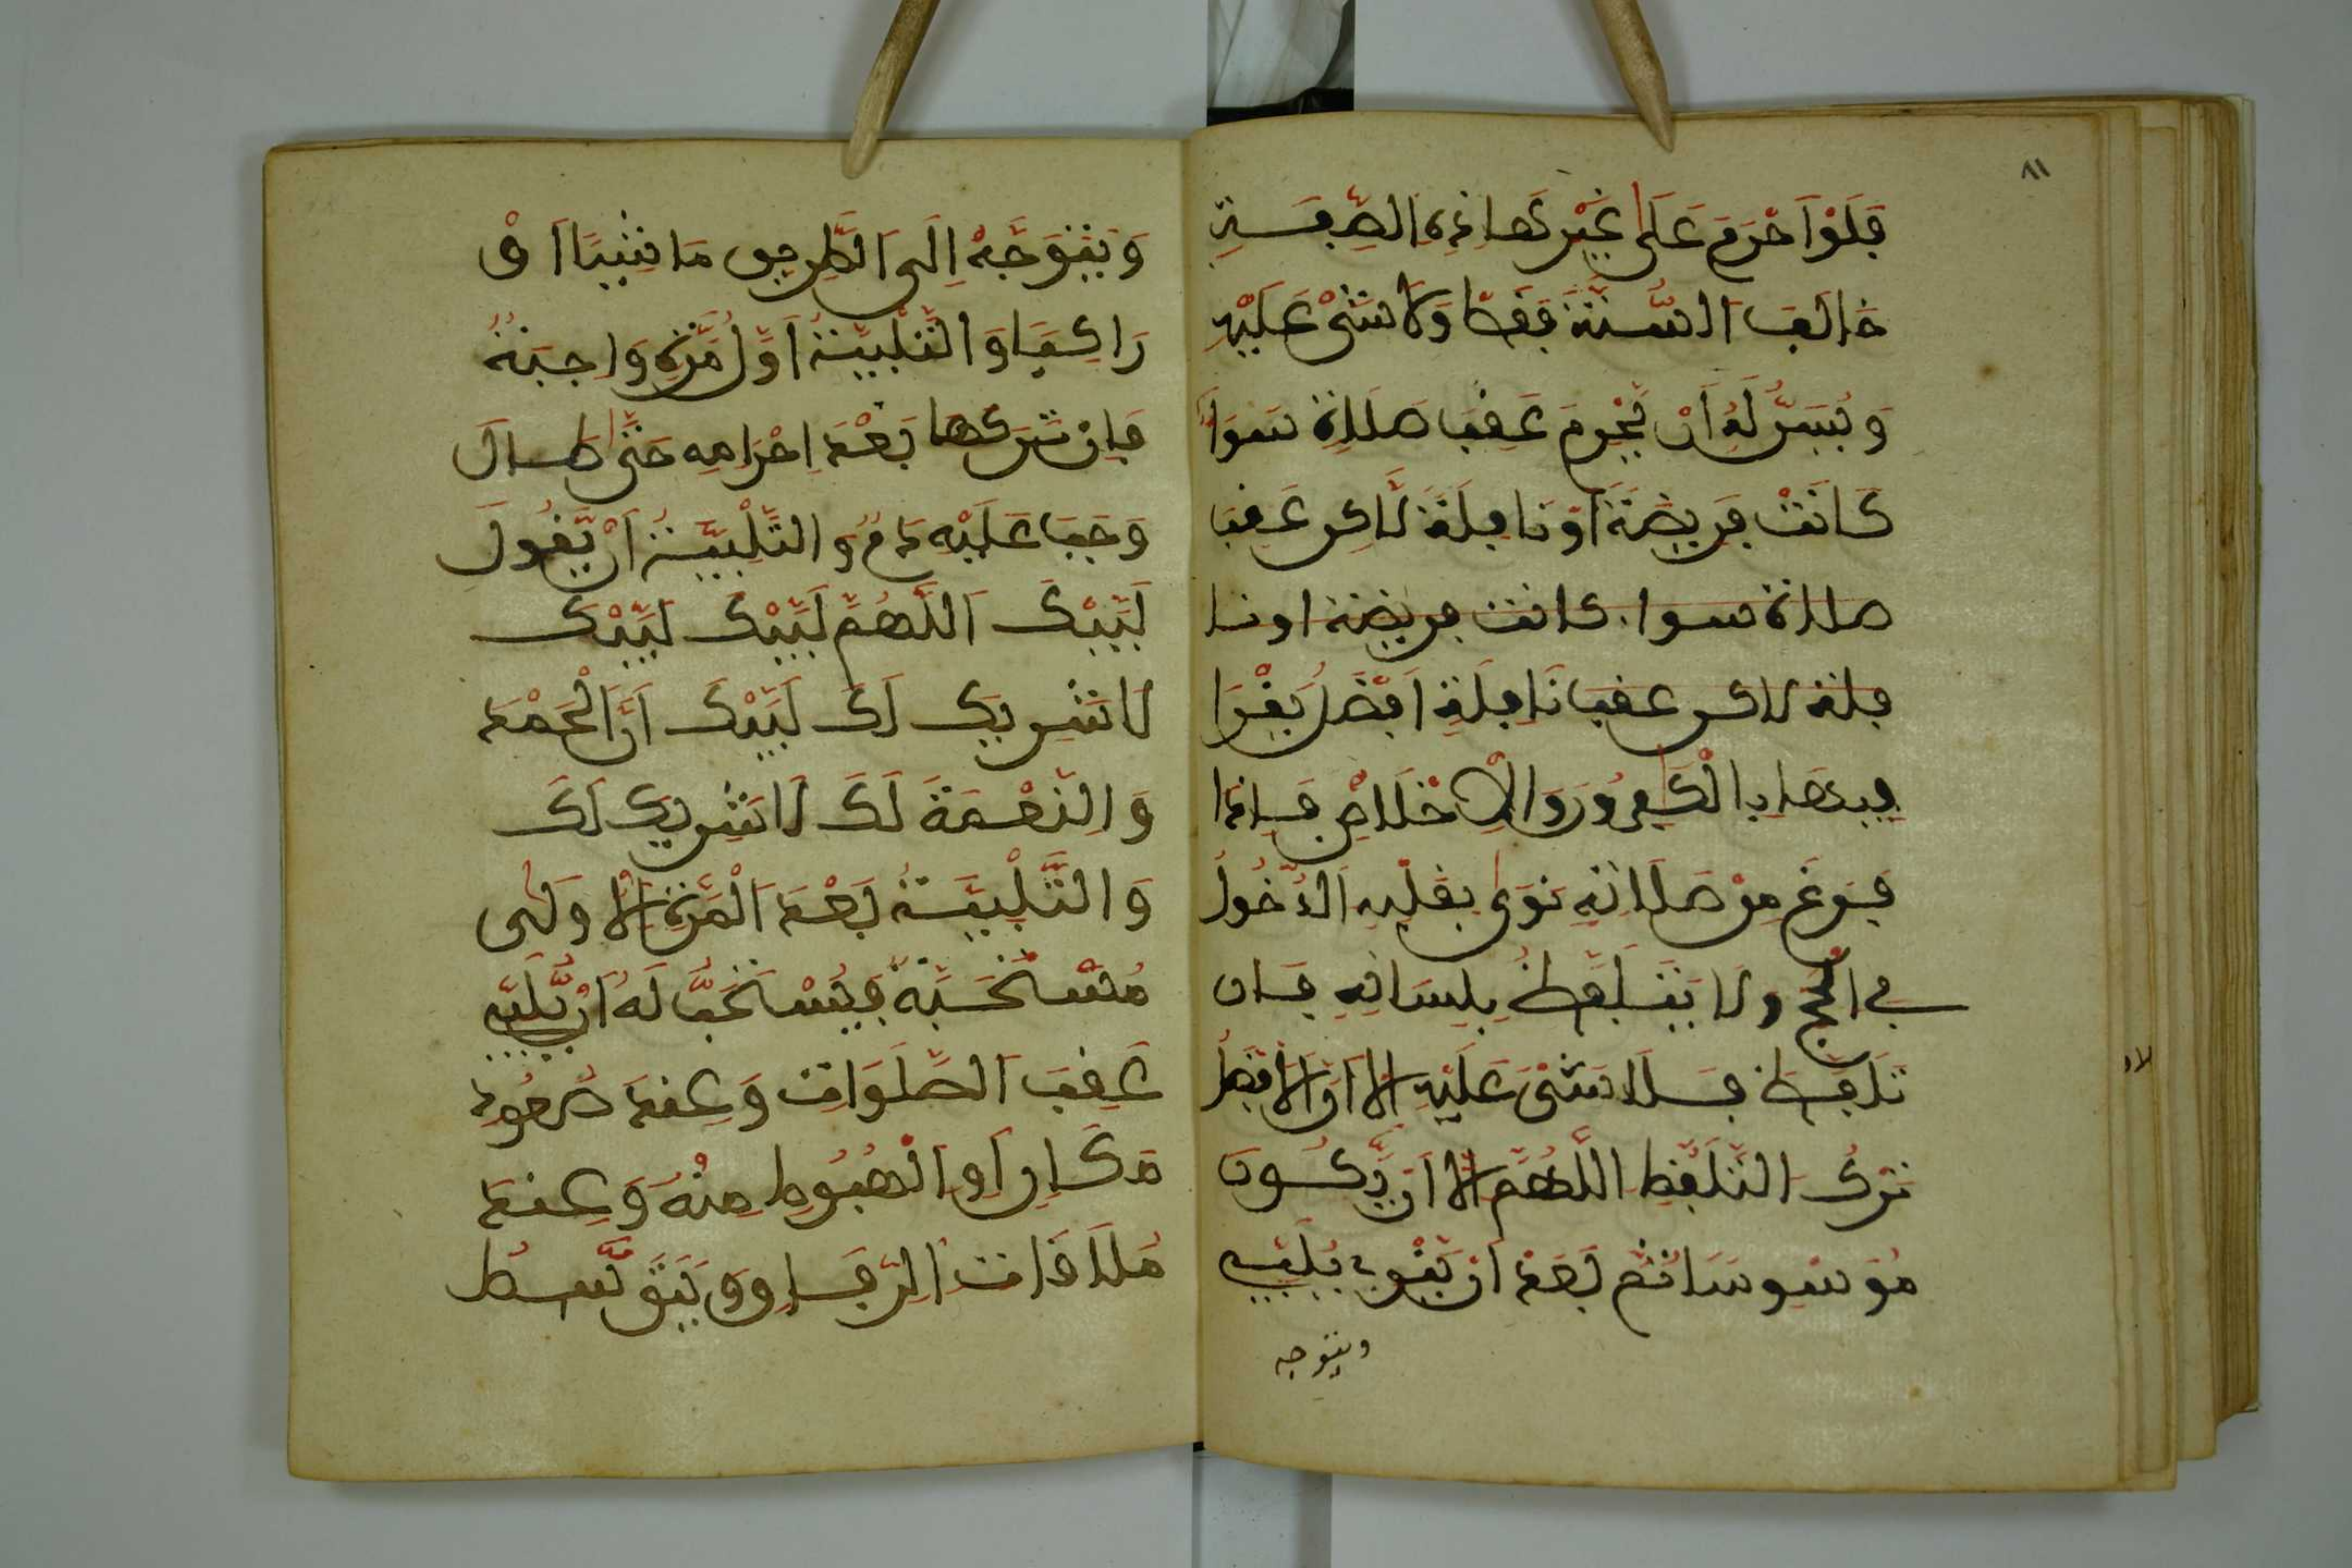 ٨١
فَلَوْ اَحْرَمَ عَلَى غَيْرِ هَاذِهِ الصِّفَةِ
خَالَفَ السُّنَّةَ فَقَطْ وَلَا شَيْءَ عَلَيْهِ
وَيُسَنُّ لَهُ أَنْ يُّحْرِمَ عَقِبَ صَلَاةٍ سَوَآءٌ
كَانَتْ فَرِيضَةً اَوْ نَافِلَةً لَّاكِن عَقِبَ
صلاة سوا. كانت فريضة او نا
فلة لاكن عقب نَافِلَةٍ اَفْضَلُ يَقْرَا
فِيهَا بِالْكَافِرُونَ وَالْاِخْلَاصِ فَإِذَا
فَرَغَ مِنْ صَلَاتِهِ نَوَى بِقَلْبِهِ الدُّخُولَ
فِي الْحَجِّ وَلَا يَتَلَفَّظُ بِلِسَانِهِ فَإِن
تَلَفَّظَ فَلَا شَيْءَ عَلَيْهِ إِلَّا أَنَّ الْأَفْضَلَ
لاد
تَرْكُ التَّلَفُّظِ اللَّهُمَّ إِلَّا أَنْ يَّكُونَ
مُوَسْوِسًا ثُمَّ بَعْدَ أَن يَنْوِيَ يُلَبِّي
ويتوجه
وَيَتَوَجَّهُ إِلَى الطَّرِيقِ مَاشِيًا اَوْ
رَاكِبًا وَالتَّلْبِيَةُ اَوَّلُ مَرَّةٍ وَاجِبَةٌ
فَإِن تَرَكَهَا بَعْدَ اِحْرَامِهِ حَتَّى طَالَ
وَجَبَ عَلَيْهِ دَمٌ وَالتَّلْبِيَةُ أَنْ يَّقُولَ
لَبَّيْكَ اَللَّهُمَّ لَبَّيْكَ لَبَّيْكَ
لَا شَرِيكَ لَكَ لَبَّيْكَ اَنَّ الْحَمْدَ
وَالنِّعْمَةَ لَكَ لَا شَرِيكَ لَكَ
وَالتَّلْبِيَةُ بَعْدَ الْمَرَّةِ الْأُولَى
مُسْتَحَبَّةٌ فَيُسْتَحَبُّ لَهُ أَنْ يُّلَبِّيَ
عَقِبَ الصَّلَوَاتِ وَعِنْدَ صُعُودِ
مَكَانٍ اَوِ الْهُبُوطِ مِنْهُ وَعِنْدَ
مُلَاقَاتِ الرِّفَاقِ وَيَتَوَسَّطُ